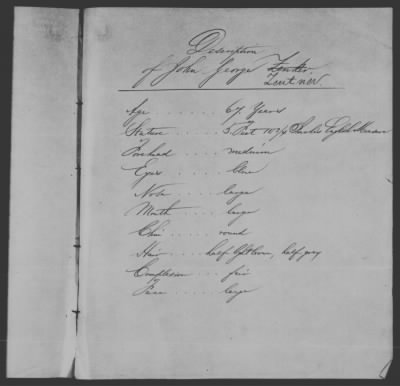 Description
of John George Zentler.
Zentner.
Age . . . . . 67 Years
Stature . . . . 5 Feet 10 3/4 Inches English Measure
Forehead . . . . medium
Eyes . . . . . blue
Nose . . . . . large
Mouth . . . . large
Chin . . . . round
Hair . . . . half light brown, half gray
Complexion . . . fair
Face . . . . large